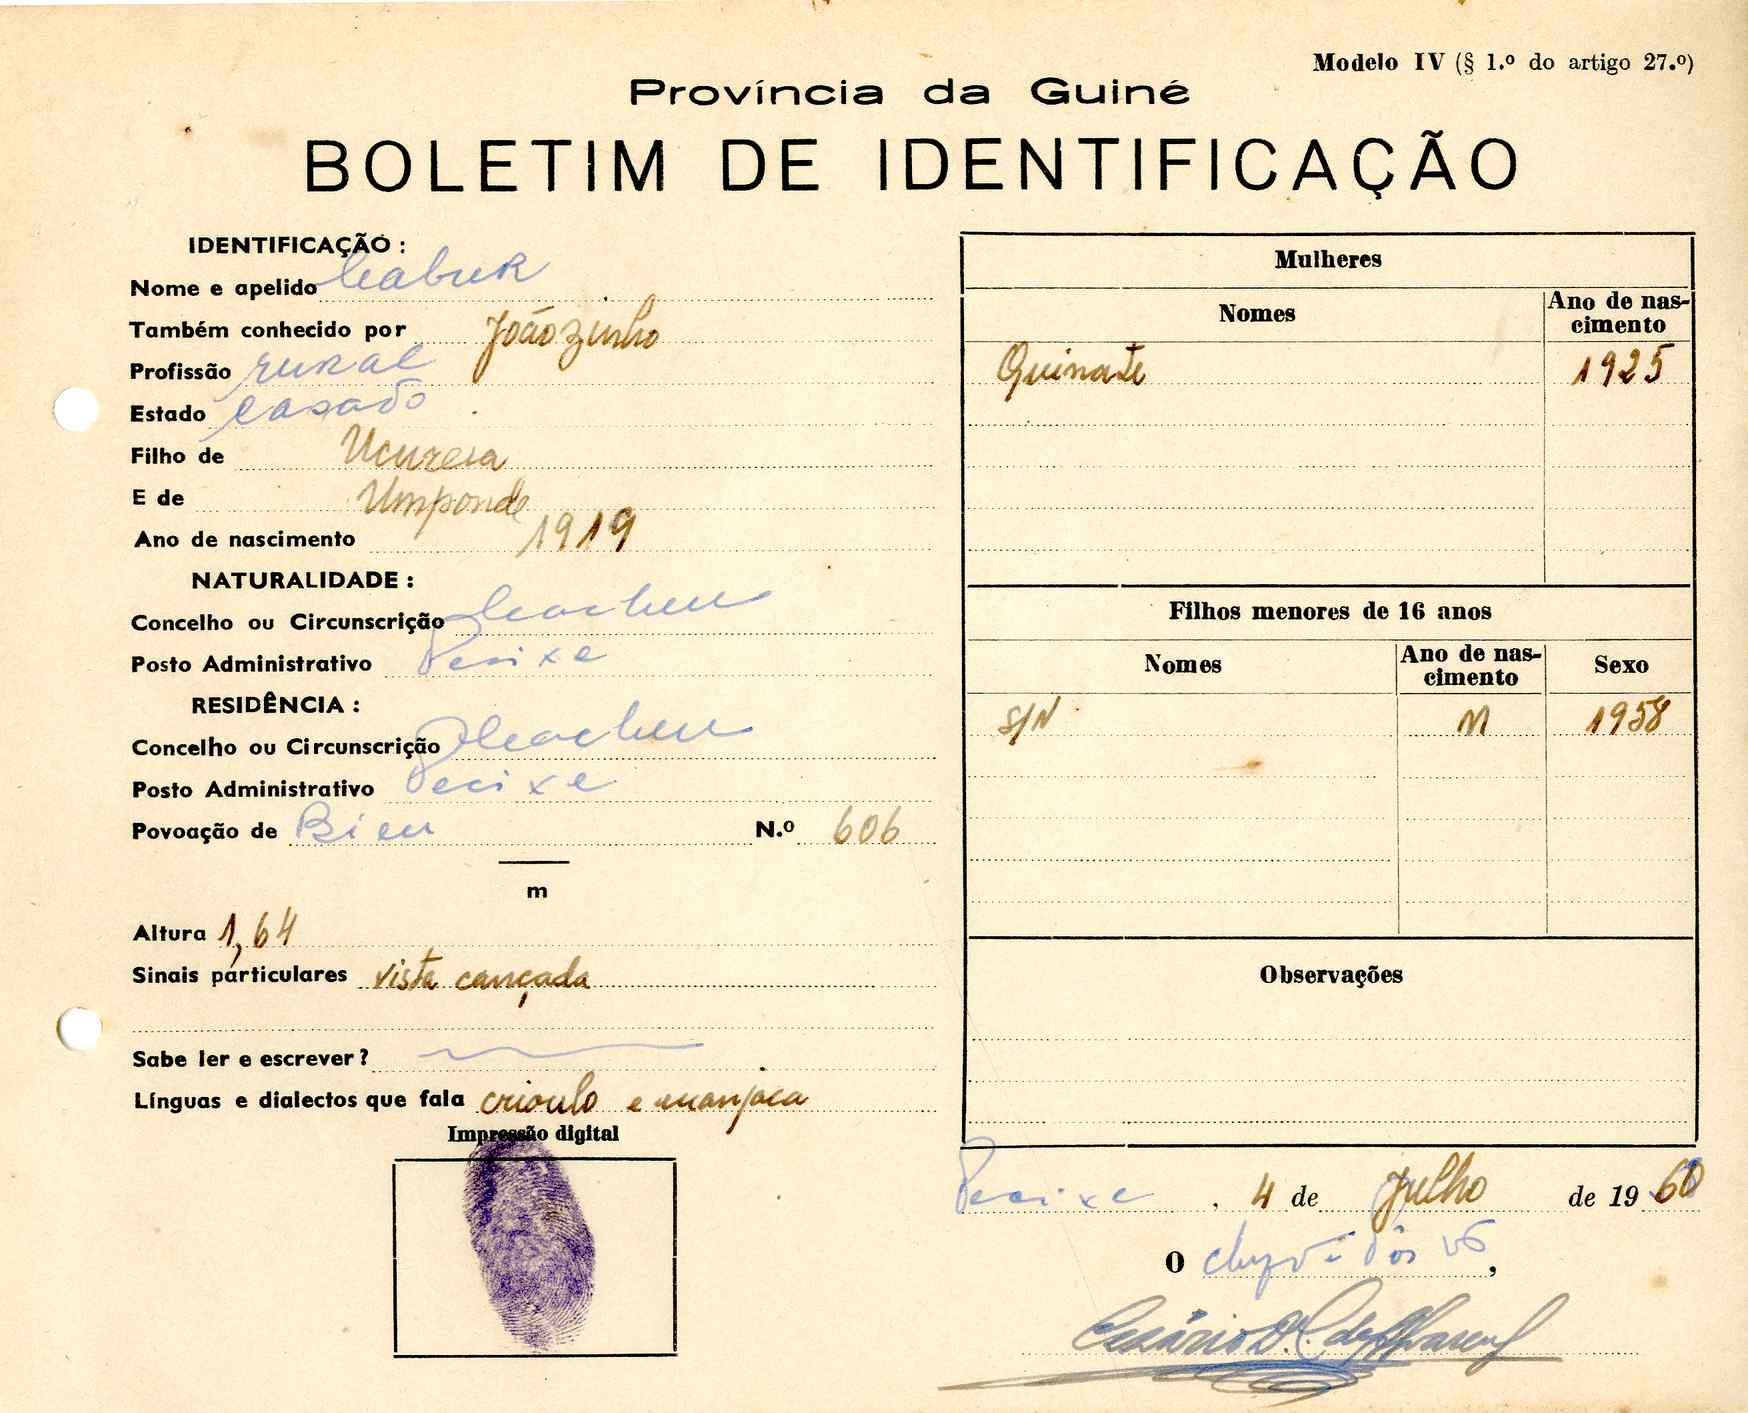 Modelo IV (§ 1.º do artigo 27.º)
Província da Guiné
BOLETIM DE IDENTIFICAÇÃO
IDENTIFICAÇÃO :
Nome e apelido Cabuk
Também conhecido por Joãozinho
Profissão rural
Estado casado
Filho de Ucureia
E de Umponde
Ano de nascimento 1919
NATURALIDADE :
Concelho ou Circunscrição Cacheu
Posto Administrativo Pecixe
RESIDÊNCIA :
Concelho ou Circunscrição Cacheu
Posto Administrativo Pecixe
Povoação de Bieu N.º 606
m
Altura 1,64
Sinais particulares vista cançada
Sabe ler e escrever?
Línguas e dialectos que fala crioulo e manjaca
Impressão digital
Mulheres
Nomes Ano de nas-
cimento
Quinate 1925
Filhos menores de 16 anos
Nomes Ano de nas-
cimento Sexo
S/N M 1958
Observações
Pecixe, 4 de Julho de 1960
O
Cesário D. C. de